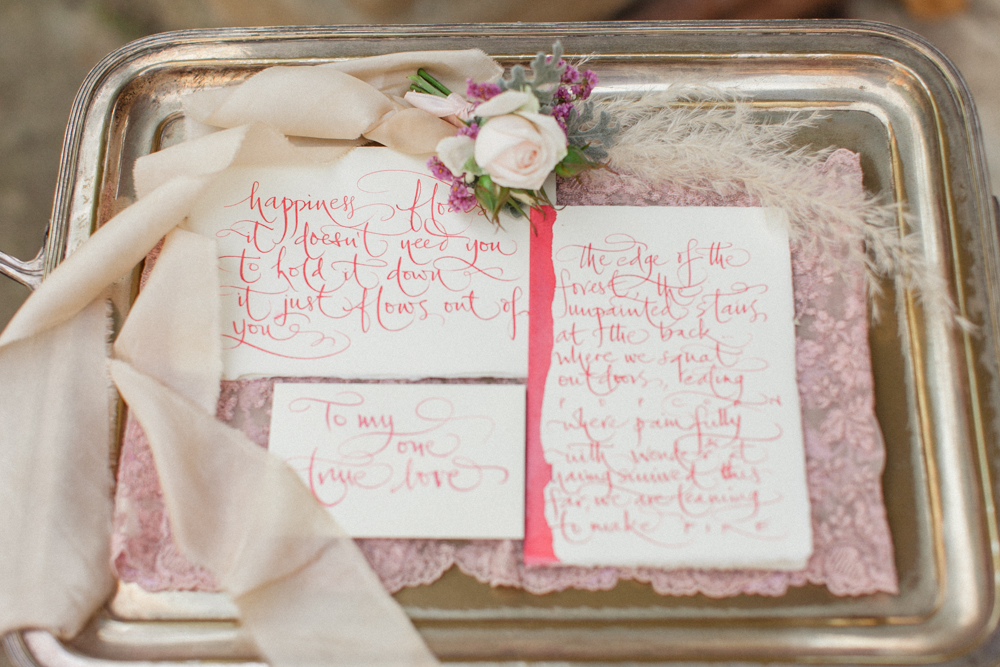 happiness
it doesn't need you
to hold it down
it just flows out of
you
To my
one
true love
the edge of the
forest, the
unpainted stairs
at the back
where we squat
outdoors,
where painfully
with wonder at
having survived this
far, we are learning
to make FIRE